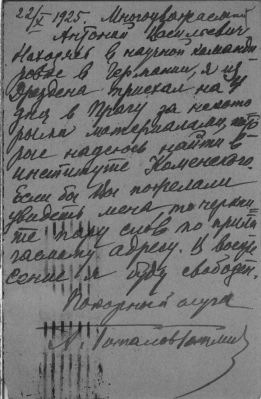 22/X 1925. Многоуважаемый
Антоний Васильевич
Находясь в научной команди
ровке в Германии, я из
Дрездена приехал на 4
дня в Прагу за некото
рыми материалами, кото
рые надеюсь найти в
институте Коменского.
Если бы Вы пожелали
увидеть меня, то черкни
те пару слов по прила
гаемому адресу. В воскре
сение я буду свободен.
Покорный слуга